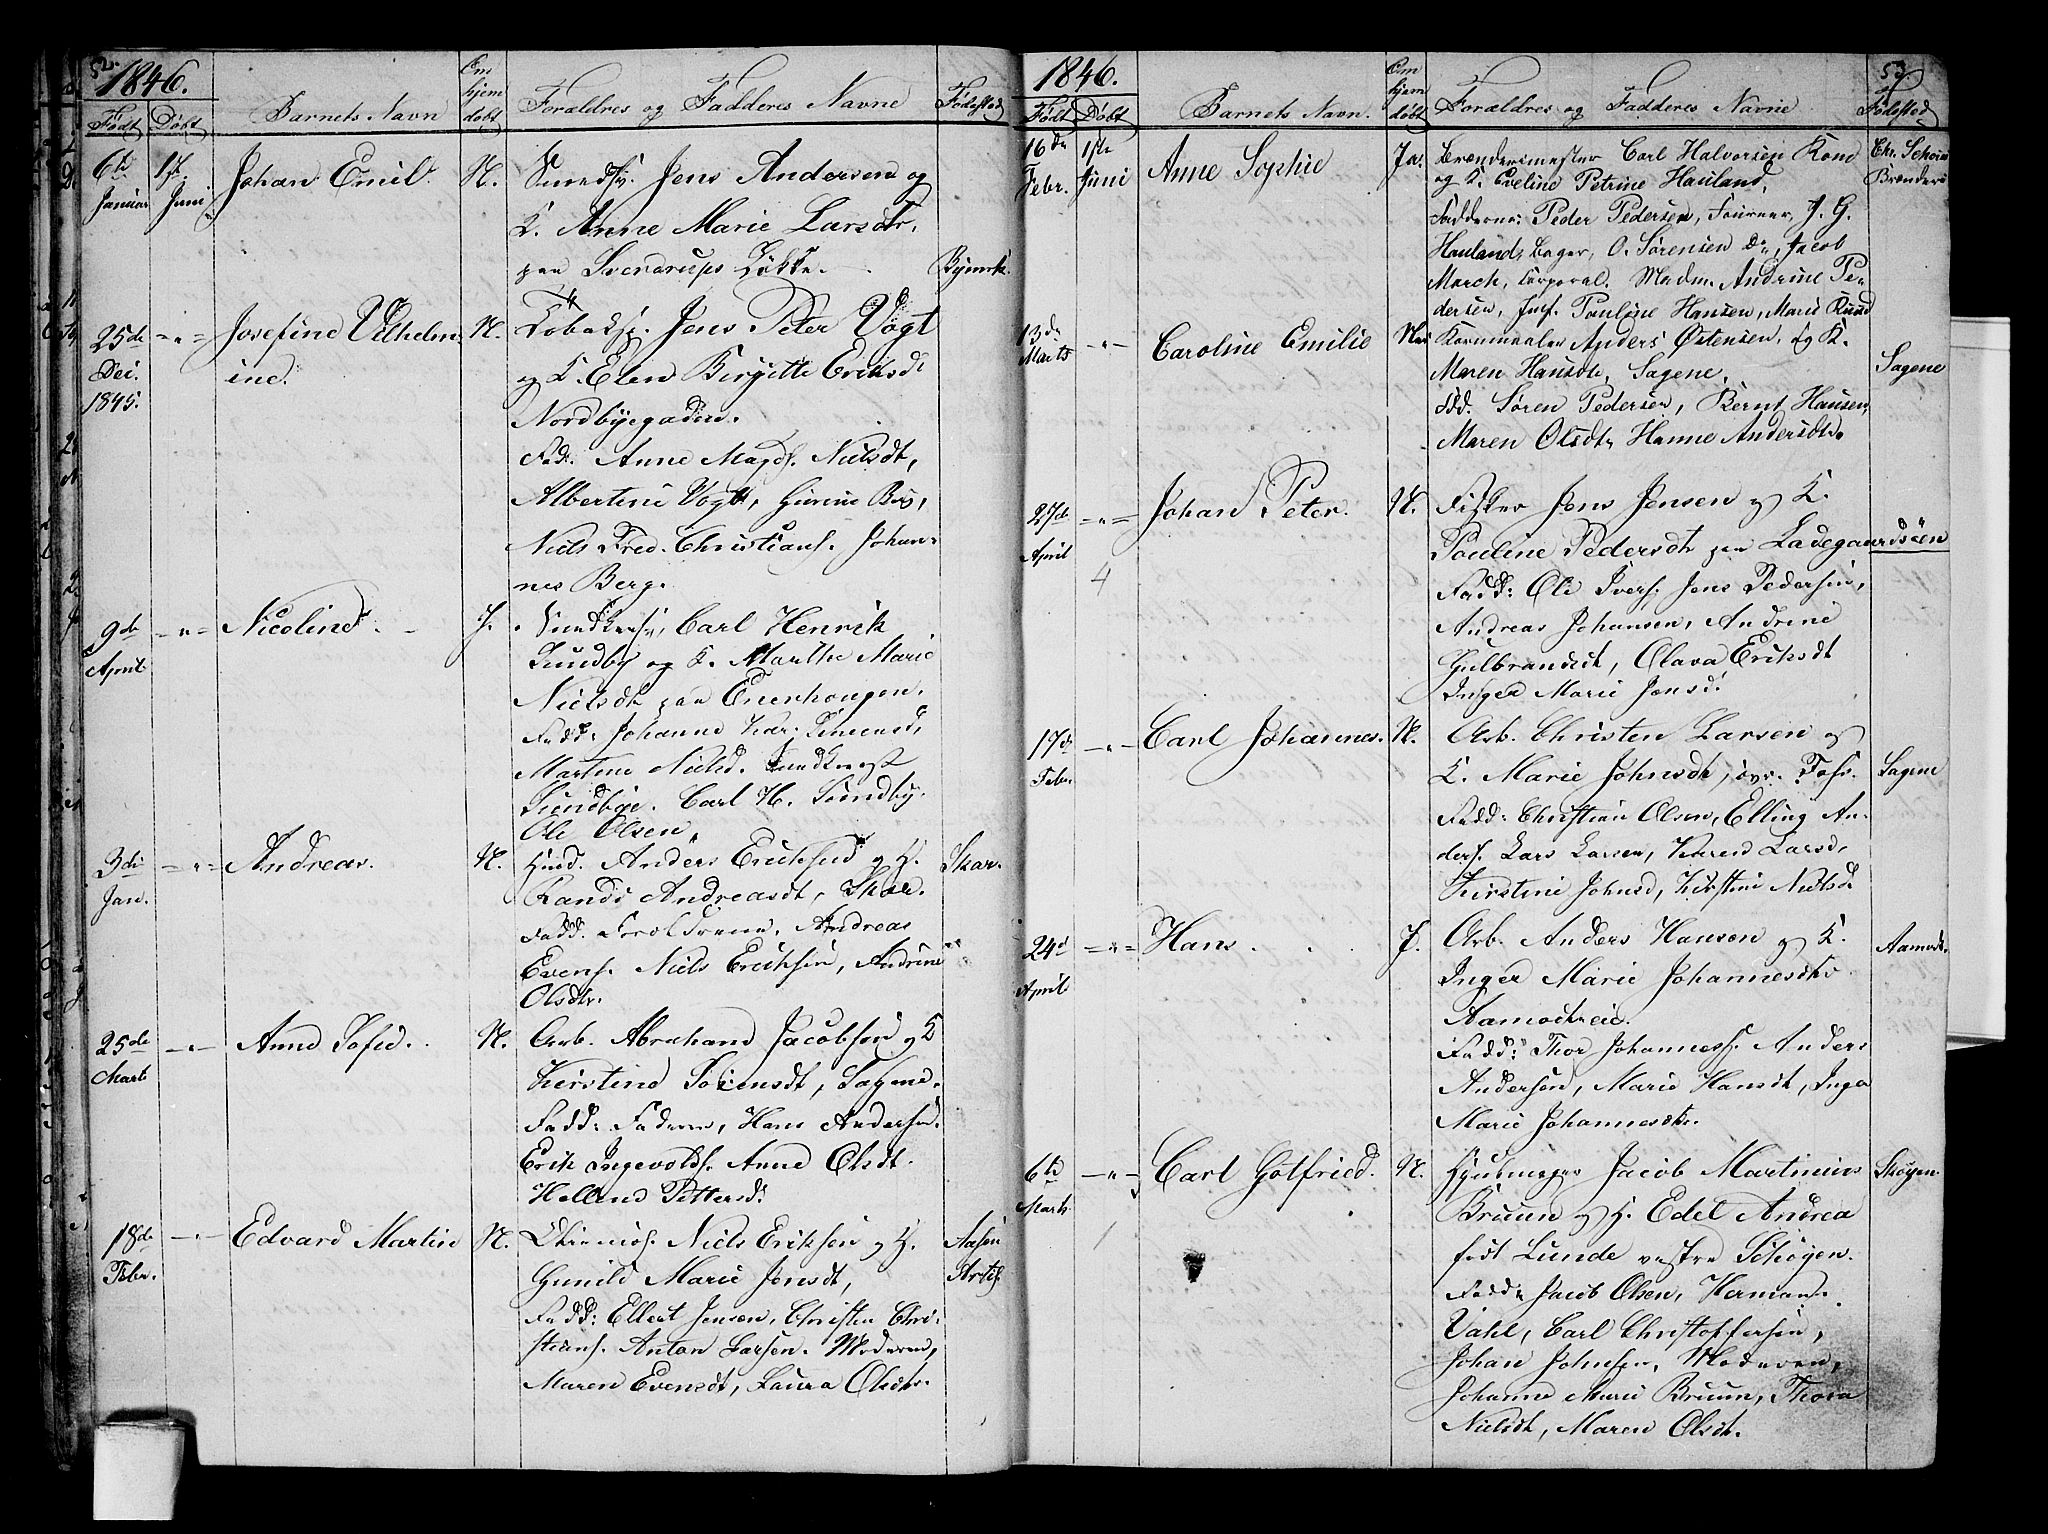 52.
1846.
Født Døbt Barnets Navn Om hjem døbt Forældres og Fadderes Navne Fødested
6te Januar 1ste Juni Johan Emil N. Smedsv. Jens Andersen og
K. Anne Marie Larsdtr.
paa Sverdrups Løkke. Bymrk.
25de Dec. 1845. -"- Josefine Vilhelm- N. Tobaksp. Jens Peter Vogt
ine. og K. Elen Birgitte Eriksd.
Nordbyegaden.
Fad. Anne Magd. Nielsdt,
Albertine Vogt,
Niels Fred. Christians. Johan-
nes Berg.
9de April -"- Nicoline. J. Carl Henrik
Sundby og K. Marthe Marie
Nielsdt paa Enerhougen.
Fadd: Johanne Kar. Simensd,
Martine Nielsd.
Sundbye. Carl H. Sundby.
Ole Olsen.
3die Jan. -"- Andreas. N. Huusd. Anders Eriksen og H.
Randi Andreasdt, Skar. Skar.
Fadd. Forældrene, Andreas
Evens. Niels Eriksen, Andrine
Olsdtr.
25de Marts -"- Anne Sofie. N. Arb. Abraham Jacobsen og K
Kirstine Sørensdt, Sagene.
Fadd: Faderen, Hans Andersen.
Erik Ingevolds. Anne Olsdt.
Hellene Pettersd.
18de Febr. -"- Edvard Martin N. Niels Eriksen og H. Aasen
Gunild Marie Jensdt,
Fadd: Ellert Jensen, Christen Chri-
stians. Anton Larsen. Moderen,
Maren Evensdt, Laura Olsdtr.
1846.
53.
Født Døbt Barnets Navn. Om hjem døbt Forældres og Fadderes Navne Fødested
16de Febr. 1ste Juni Anne Sophie Ja. Brændersmester Carl Halvorsen
og K. Eveline Petrine Hauland,
Fadderne: Peder Pedersen, J. G.
Hauland, Bager, O. Sørensen Do, Jacob
March, Corporal. Madm. Andrine Pe-
dersen, Jmf. Pauline Hansen, Marie Ruud
13de Marts -"- Caroline Emilie Nei Kornmaaler Anders Østensen, og K.
Maren Hansdtr, Sagene. Sagene
Fdd. Søren Pedersen, Bernt Hansen,
Maren Olsdtr, Hanne Andersdtr.
27de April -"- Johan Peter. N. Fisker Jens Jensen og K.
Pauline Pedersdtr paa Ladegaardsöen
4
Fadd: Ole Ivers. Jens Pedersen,
Andreas Johansen, Andrine
Gulbrandsdt, Olava Eriksdt
Inger Marie Jensd.
17de Febr. -"- Carl Johannes. N. Arb. Christen Larsen og
K. Marie Johnsdtr, Sagene
Fadd: Christian Olsen, Elling An-
ders. Lars Larsen, Karen Larsd,
Kirstine Johnsd, Kirstine Nielsd
24de April -"- Hans. J. Arb. Anders Hansen og K.
Inger Marie Johannesdtr Aamodt.
Aamodtveie.
Fadd: Thor Johanness. Anders
Andersen, Marie Hansdt, Inga
Marie Johannesdtr.
6te Marts -"- Carl Gotfried. N. Hjulmager Jacob Martinius Skøyen
Bruun og H. Edel Andrea
1
født Lunde vestre Schøgen.
Fadd: Jacob Olsen, Hermans.
Vahl, Carl Christoffersen,
Johan Johnsen, Moderen,
Johanne Marie Bruun, Thora
Nielsdt, Maren Olsdt.